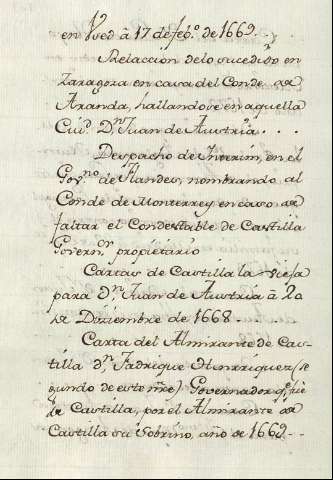 en Ved à 17 de feb.º de 1669.
Relacion delo sucedido en
Zaragoza en casa del Conde de
Aranda, hallandose en aquella
Ciu.d D.n Juan de Austria...
Despacho de Interim, en el
Gov.no de Flandes, nombrando al
Conde de Monterrey en caso de
faltar el Condestable de Castilla
Govern.or propietario
Cartas de Castilla la Vieja
para D.n Juan de Austria à 20
de Diziembre de 1668.
Carta del Almirante de Cas-
tilla d.n Fadrique Henrriquez (se
gundo de este nre) Governador q.e fué
de Castilla, por el Almirante de
Castilla su Sobrino, año de 1669.